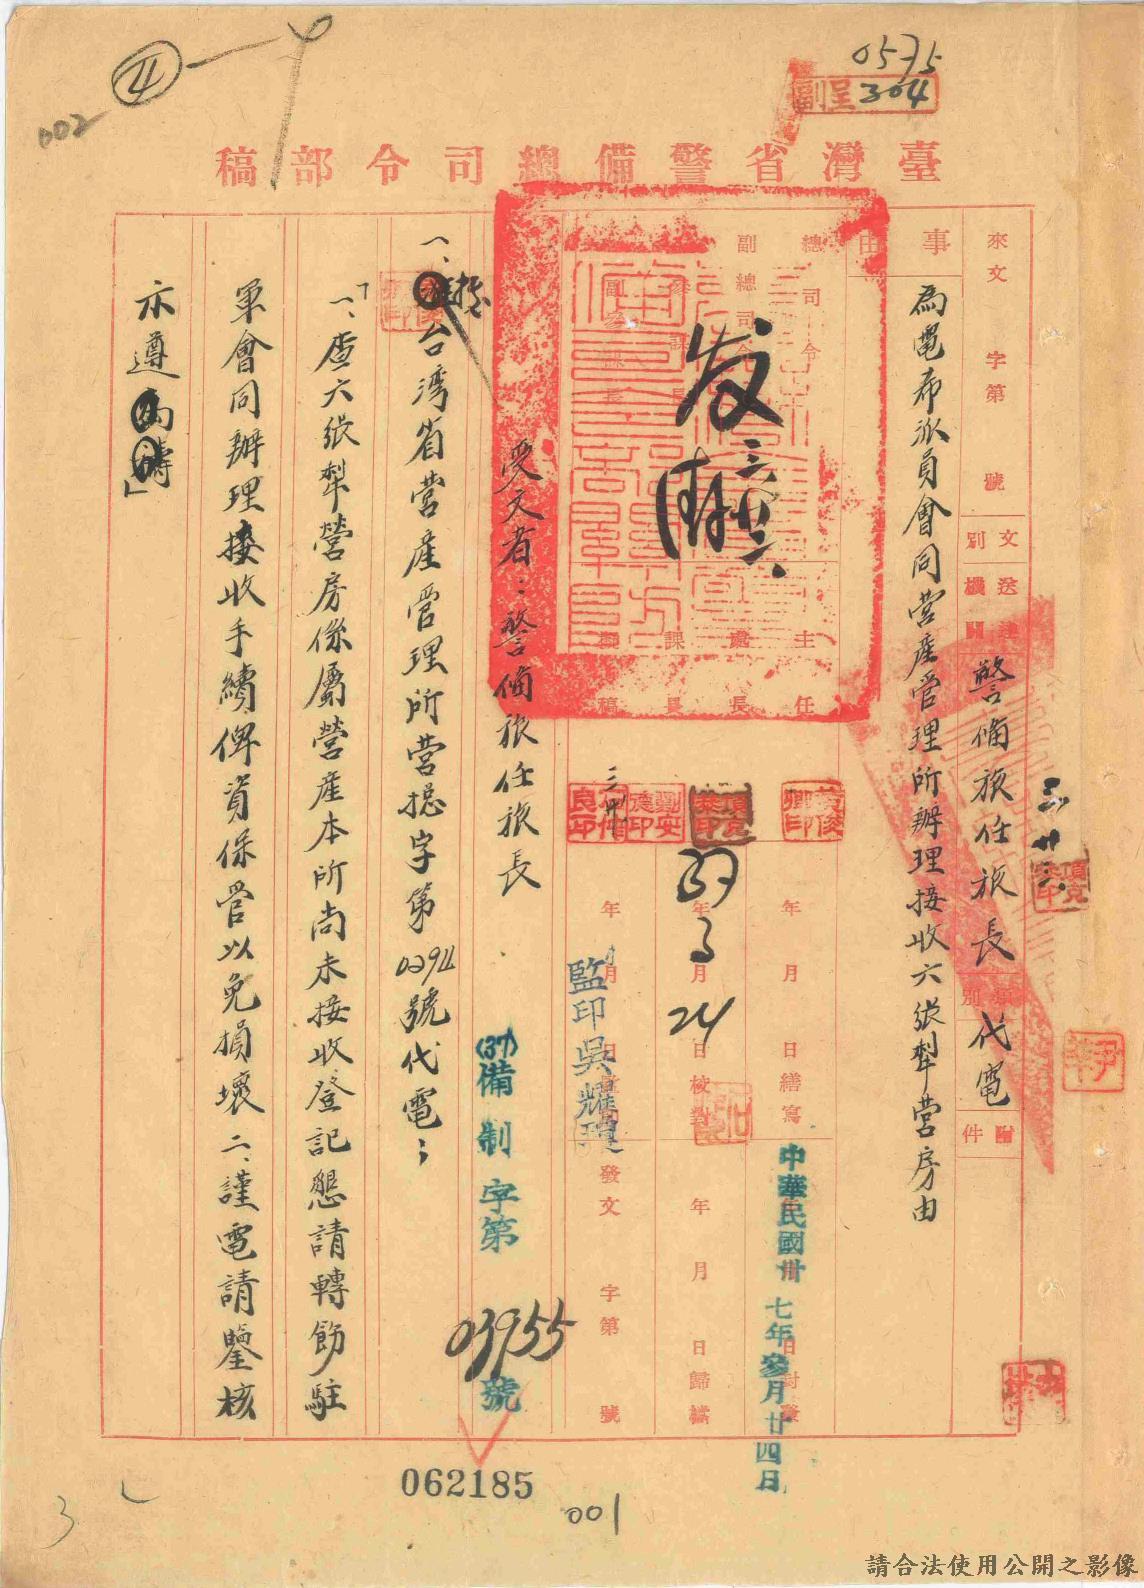 0575
副呈304
002
臺灣省警備總司令部稿
來文 字第 號
文別
代電
送達機關
警備旅任旅長
類別
附件
事由
為電希派員會同營產管理所辦理接收六張犁營房由
總司令
副總司令
發
主任
處長
課長
擬稿
三 廿三
項克恭印
黃俊卿印
37年3月24日核對
年 月 日繕寫
年 月 日歸檔
中華民國卅七年參月廿四日
監印吳耀瓊
發文 字第 號
(37)備制字第03955號
受文者：警備旅任旅長
一、據台湾省營產管理所營揔字第0294號代電：
「一、查六張犁營房係屬營產本所尚未接收登記懇請轉飭駐
軍會同辦理接收手續俾資保管以免損壞二、謹電請鑒核
示遵」
062185
001
3
請合法使用公開之影像